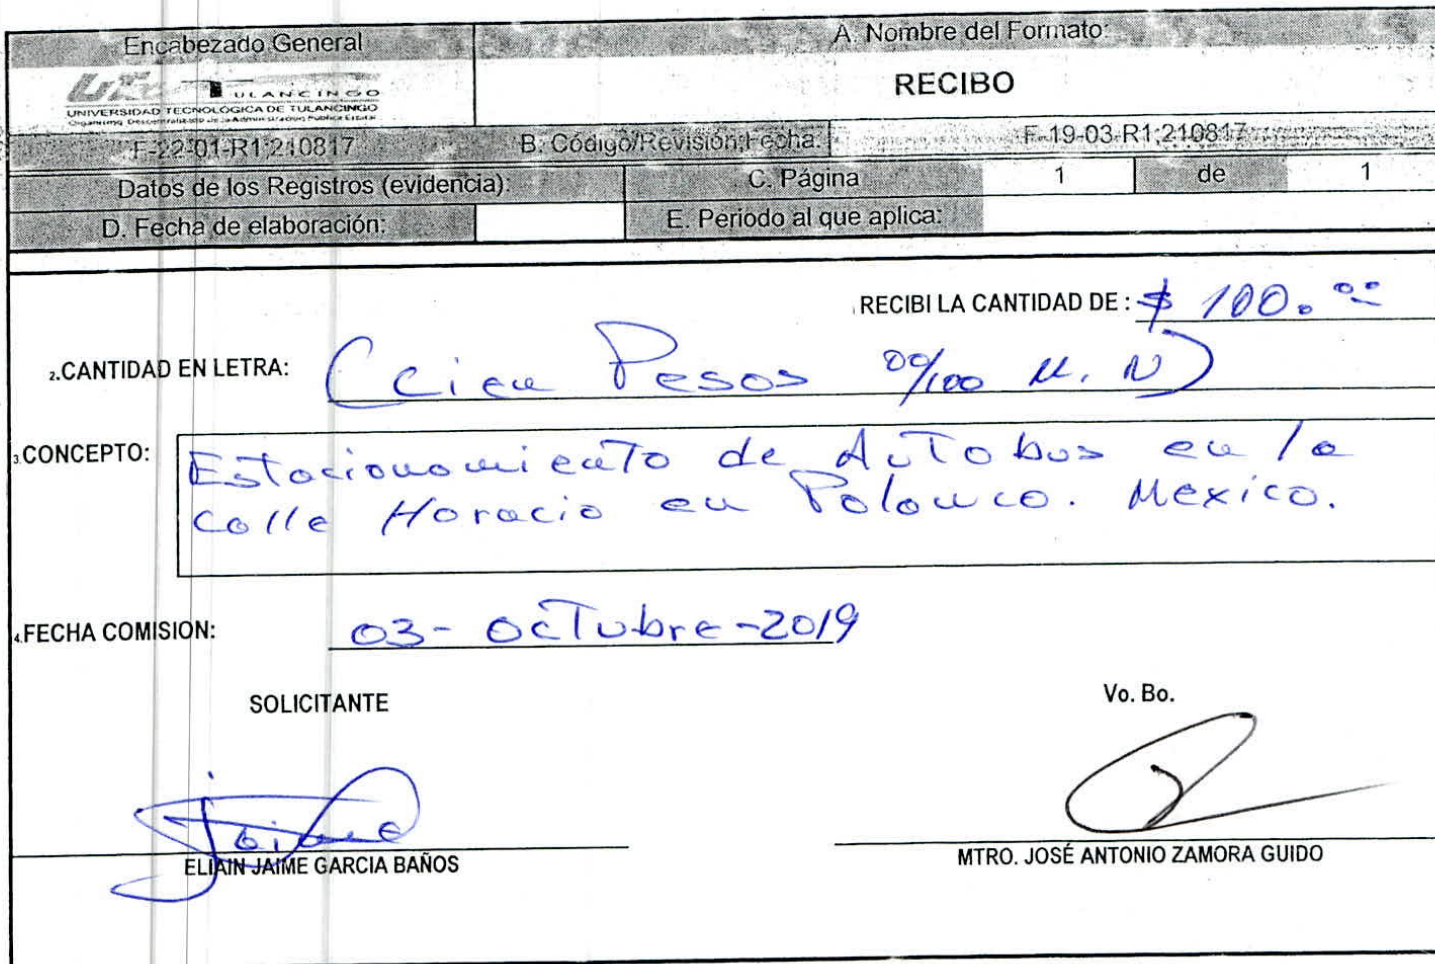 Encabezado General
A. Nombre del Formato:
TULANCINGO
UNIVERSIDAD TECNOLÓGICA DE TULANCINGO
Organismo Descentralizado de la Administración Pública Estatal
RECIBO
F-22-01-R1;210817
B. Código/Revisión;Fecha:
F-19-03-R1;210817
Datos de los Registros (evidencia):
C. Página
1
de
1
D. Fecha de elaboración:
E. Periodo al que aplica:
1.RECIBI LA CANTIDAD DE : $ 100.00
2.CANTIDAD EN LETRA: (cien Pesos 00/100 M.N)
3.CONCEPTO: Estacionamiento de Autobus en la
calle Horacio en Polanco. Mexico.
4.FECHA COMISION: 03- Octubre-2019
SOLICITANTE
Vo. Bo.
Jaime
ELIAIN JAIME GARCIA BAÑOS
MTRO. JOSÉ ANTONIO ZAMORA GUIDO